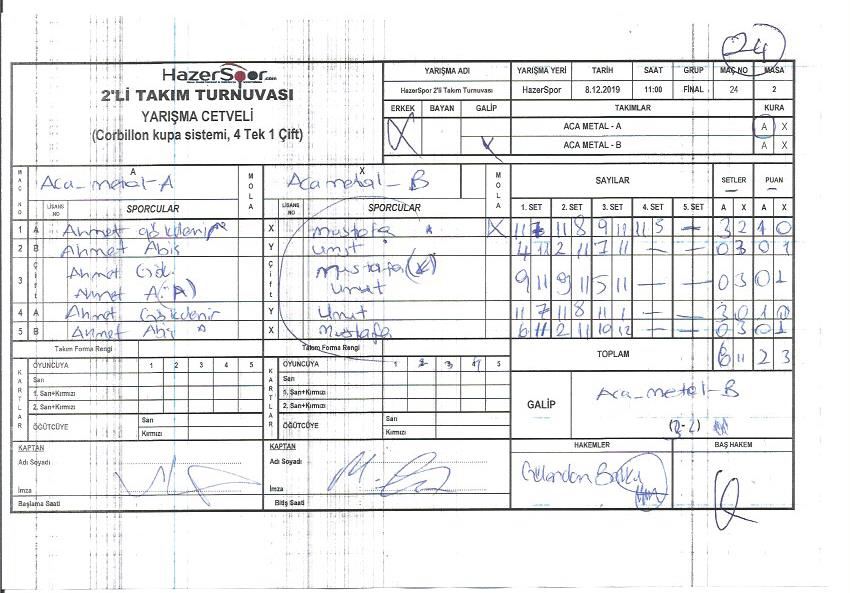 24
HazerSpor.com
2'Lİ TAKIM TURNUVASI
YARIŞMA CETVELİ
(Corbillon kupa sistemi, 4 Tek 1 Çift)
YARIŞMA ADI YARIŞMA YERİ TARİH SAAT GRUP MAÇ NO MASA
HazerSpor 2'li Takım Turnuvası HazerSpor 8.12.2019 11:00 FİNAL 24 2
ERKEK BAYAN GALİP TAKIMLAR KURA
X ACA METAL - A A X
X ACA METAL - B A X
MAÇ NO A MOLA X MOLA SAYILAR SETLER PUAN
Aca-metal-A Aca metal-B
LİSANS NO SPORCULAR LİSANS NO SPORCULAR 1. SET 2. SET 3. SET 4. SET 5. SET A X A X
1 A Ahmet X Mustafa X 11 11 8 9 11 11 5 — 3 2 1 0
2 B Ahmet Abiş Y Umut 4 11 2 11 7 11 — — 0 3 0 1
3 Çift Ahmet Gök. Çift Mustafa (X) 9 11 9 11 5 11 — — 0 3 0 1
Ahmet A. (A) Umut
4 A Ahmet Gökdenir Y Umut 11 7 11 8 11 1 — — 3 0 1 0
5 B Ahmet Abiş X Mustafa 6 11 2 11 10 12 — — 0 3 0 1
Takım Forma Rengi Takım Forma Rengi TOPLAM 6 11 2 3
KARTLAR OYUNCUYA 1 2 3 4 5 KARTLAR OYUNCUYA 1 2 3 4 5
Sarı Sarı
1. Sarı+Kırmızı 1. Sarı+Kırmızı
2. Sarı+Kırmızı 2. Sarı+Kırmızı
GALİP Aca-metal-B
ÖĞÜTCÜYE Sarı ÖĞÜTCÜYE Sarı
Kırmızı Kırmızı
KAPTAN KAPTAN HAKEMLER BAŞ HAKEM
Adı Soyadı Adı Soyadı
İmza İmza
Başlama Saati Bitiş Saati